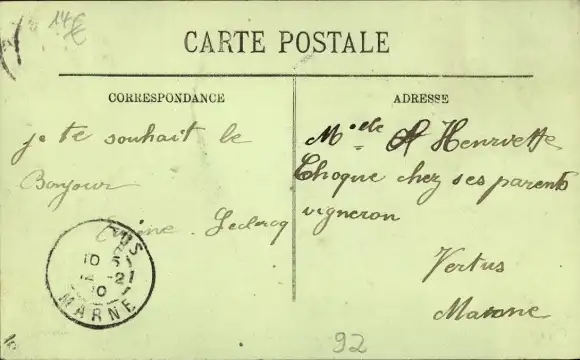 14€
CARTE POSTALE
CORRESPONDANCE
je te souhait le
Bonjour
Leclercq
ADRESSE
Melle Henriette
Choque chez ses parents
vigneron
Vertus
Marne
US
MARNE
92